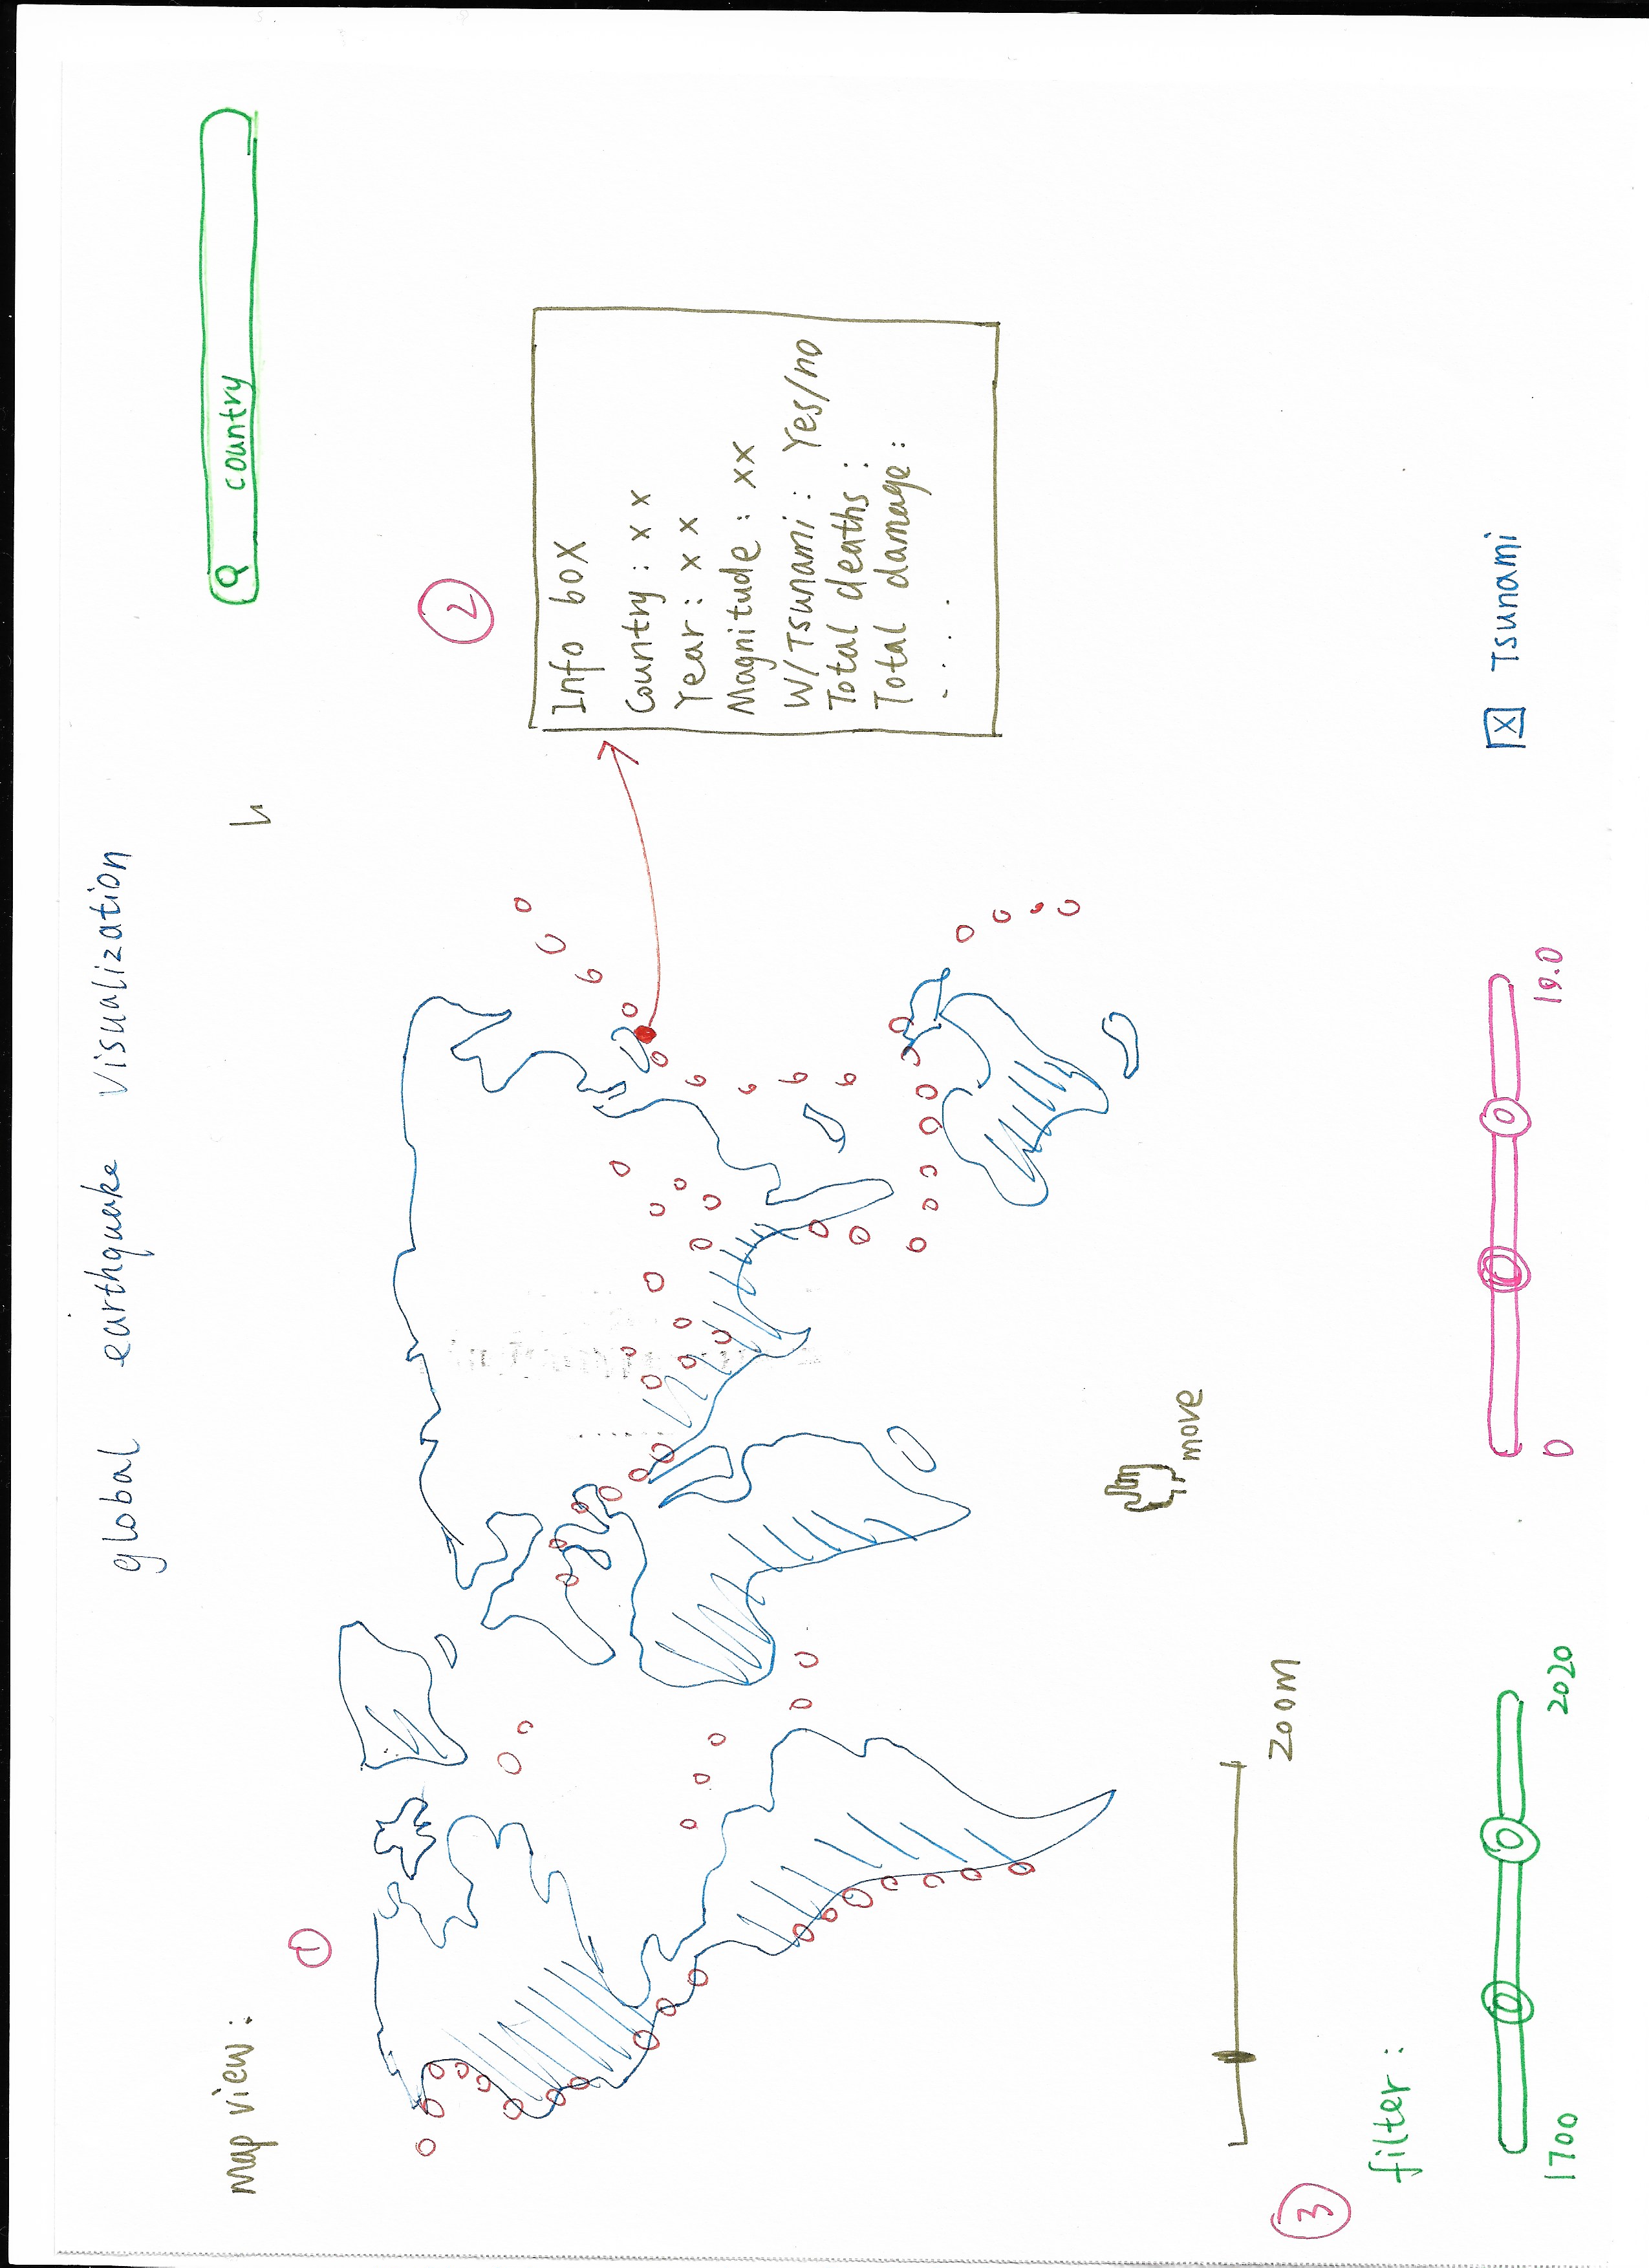 global earthquake visualization
Map view:
country
1
2
Info box
Country: x x
Year: x x
Magnitude: xx
W/Tsunami: Yes/no
Total deaths:
Total damage:
.....
move
Zoom
3
filter:
1700
2020
0
10.0
x Tsunami